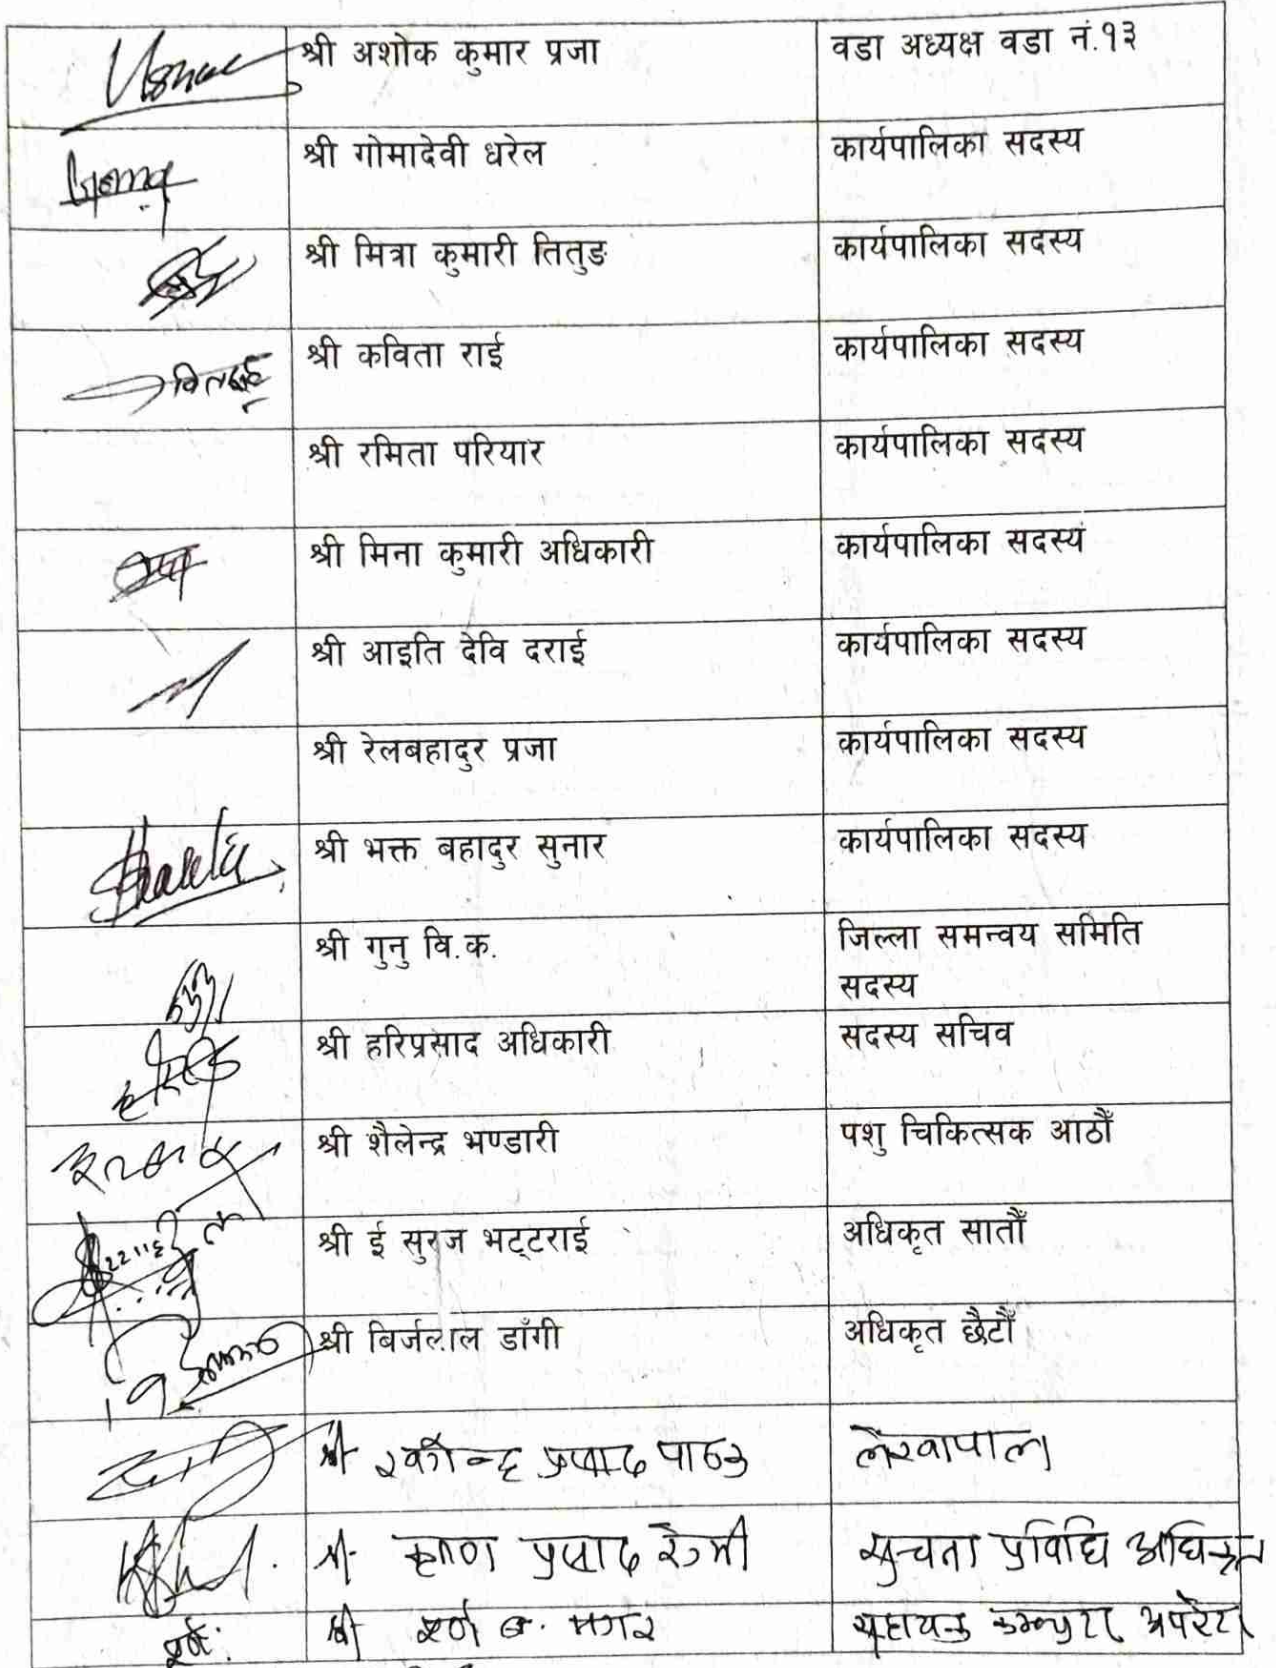 श्री अशोक कुमार प्रजा वडा अध्यक्ष वडा नं.१३
श्री गोमादेवी धरेल कार्यपालिका सदस्य
श्री मित्रा कुमारी तितुङ कार्यपालिका सदस्य
श्री कविता राई कार्यपालिका सदस्य
श्री रमिता परियार कार्यपालिका सदस्य
श्री मिना कुमारी अधिकारी कार्यपालिका सदस्य
श्री आइति देवि दराई कार्यपालिका सदस्य
श्री रेलबहादुर प्रजा कार्यपालिका सदस्य
श्री भक्त बहादुर सुनार कार्यपालिका सदस्य
श्री गुनु वि.क. जिल्ला समन्वय समिति
सदस्य
श्री हरिप्रसाद अधिकारी सदस्य सचिव
श्री शैलेन्द्र भण्डारी पशु चिकित्सक आठौँ
श्री ई सुरज भट्टराई अधिकृत सातौँ
श्री बिर्जलाल डाँगी अधिकृत छैटौँ
श्री प्रसाद लेखापाल
श्री कृष्ण प्रसाद रेग्मी सुचना प्रविधि अधिकृत
श्री ब. मगर सहायक कम्प्युटर अपरेटर